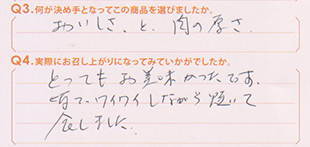 Q3.何が決め手となってこの商品を選びましたか。
おいしさ、と、肉の厚さ。
Q4.実際にお召し上がりになってみていかがでしたか。
とってもお美味かったです。
皆で、ワイワイしながら焼いて
食しました。